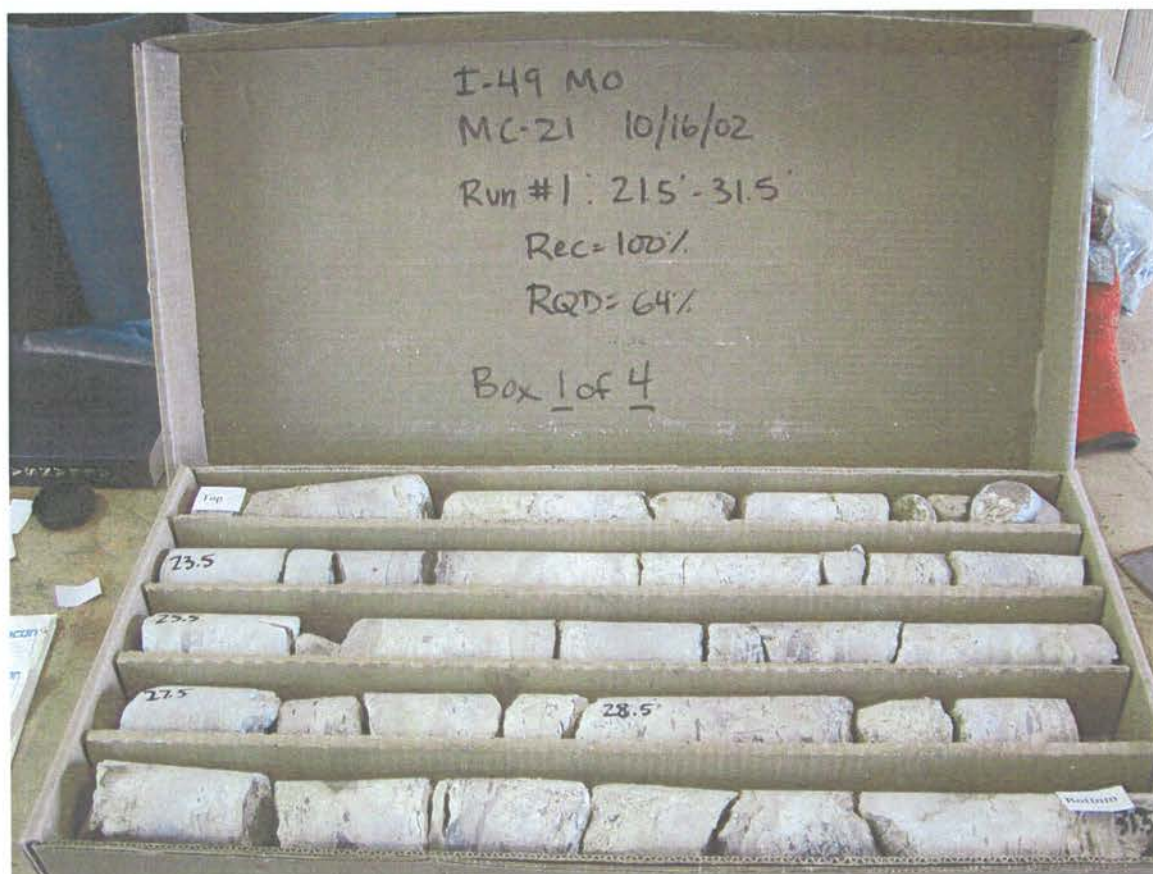 I-49 MO
MC-21 10/16/02
Run #1: 21.5'-31.5'
Rec=100%
RQD=64%
Box 1 of 4
Top
23.5
25.5
27.5
28.5'
Bottom
31.5